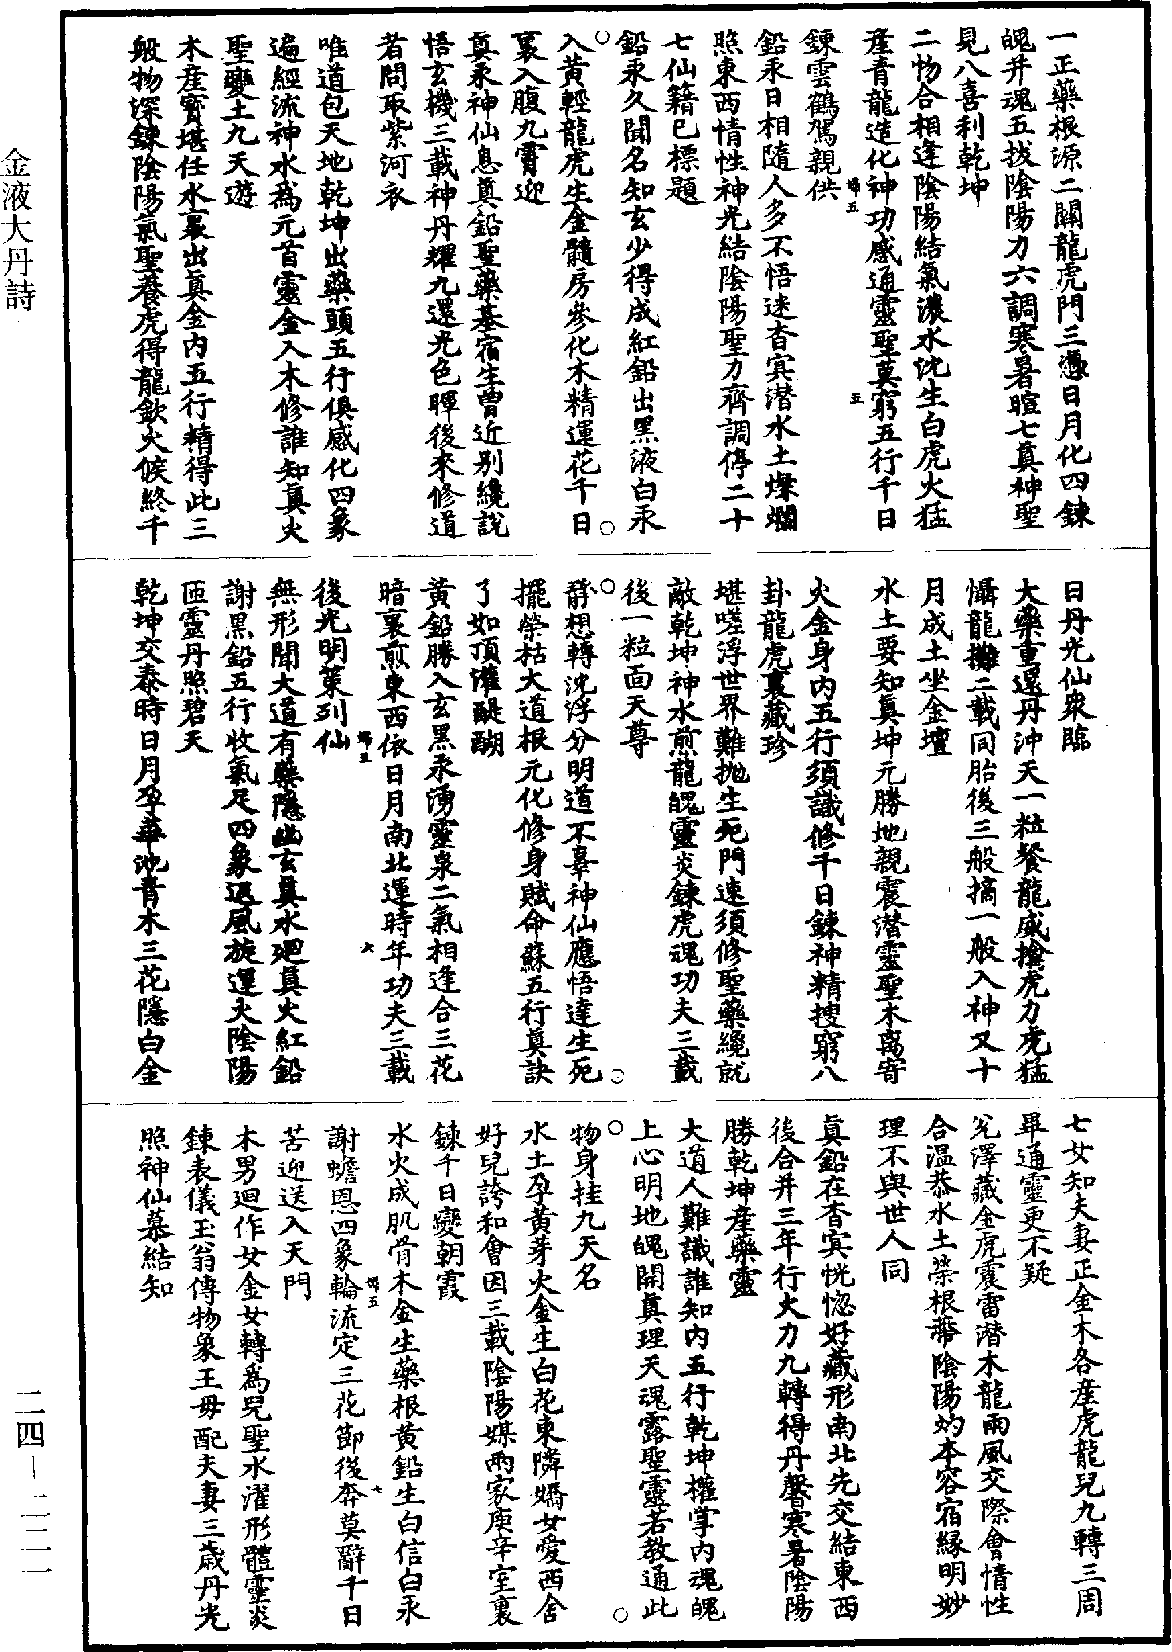 金液大丹詩
一正藥根源二關龍虎門三憑日月化四鍊
魄并魂五拔陰陽力六調寒暑暄七真神聖
見八喜利乾坤
二物合相逢陰陽結氣濃水沈生白虎火猛
產青龍造化神功感通靈聖莫窮五行千日
鍊雲鶴駕親供
婦五
五
鉛汞日相隨人多不悟迷杳㝠潛水土爍爛
照東西情性神光結陰陽聖力齊調停二十
七仙籍巳標題
鉛汞久聞名知玄少得成紅鉛出黑液白汞
入黃輕龍虎生金髓房參化木精運花千日
裏入腹九霄迎
真汞神仙息真鉛聖藥基宿生曾近别纔說
悟玄機三載神丹耀九還光色暉後來修道
者問取紫河衣
唯道包天地乾坤出藥頭五行俱感化四象
遍經流神水為元首靈金入木修誰知真火
聖變土九天遊
木產寶堪任水裏出真金内五行精得此三
般物深鍊陰陽氣聖養虎得龍欽火候終千
日丹光仙衆臨
大藥重還丹沖天一粒餐龍威擒虎力虎猛
懾龍攤二載同胎後三般搞一般入神又十
月成土坐金壇
水土要知真坤元勝地親震潛靈聖木离寄
火金身内五行須識修千日鍊神精搜窮八
卦龍虎裏藏珍
堪嗟浮世界難抛生死門速須修聖藥纔就
敵乾坤神水煎龍魄靈炎鍊虎魂功夫三載
後一粒面天尊
靜想轉沈浮分明道不辜神仙應悟達生死
擺榮枯大道根元化修身賦命蘇五行真訣
了如頂灌醍醐
黃鉛勝入玄黑汞湧靈泉二氣相逢合三花
暗裏煎東西依日月南北運時年功夫三載
後光明策列仙
婦五
六
無形聞大道有藥隱幽玄真水廻真火紅鉛
謝黑鉛五行收氣足四象返風旋運火陰陽
匝靈丹照碧天
乾坤交泰時日月孕華池青木三花隱白金
七女知夫妻正金木各產虎龍兒九轉三周
畢通靈更不疑
兊澤藏金虎震雷潛木龍雨風交際會情性
合温恭水土榮根蔕陰陽灼本容宿緣明妙
理不與世人同
真鉛在杳㝠恍惚好藏形南北先交結東西
後合并三年行大力九轉得丹馨寒暑陰陽
勝乾坤產藥靈
大道人難識誰知内五行乾坤權掌内魂魄
上心明地魄開真理天魂露聖靈若教通此
物身挂九天名
水土孕黃芽火金生白花東隣嬌女愛西舍
好兒誇和會因三載陰陽媒兩家庚辛室裏
鍊千日變朝霞
水火成肌骨木金生藥根黃鉛生白信白汞
謝蟾恩四象輪流定三花節後奔莫辭千日
苦迎送入天門
婦五
七
木男廻作女金女轉為兒聖水濯形體靈炎
鍊表儀玉翁傳物象王毋配夫妻三歲丹光
照神仙慕結知
二四—二二一